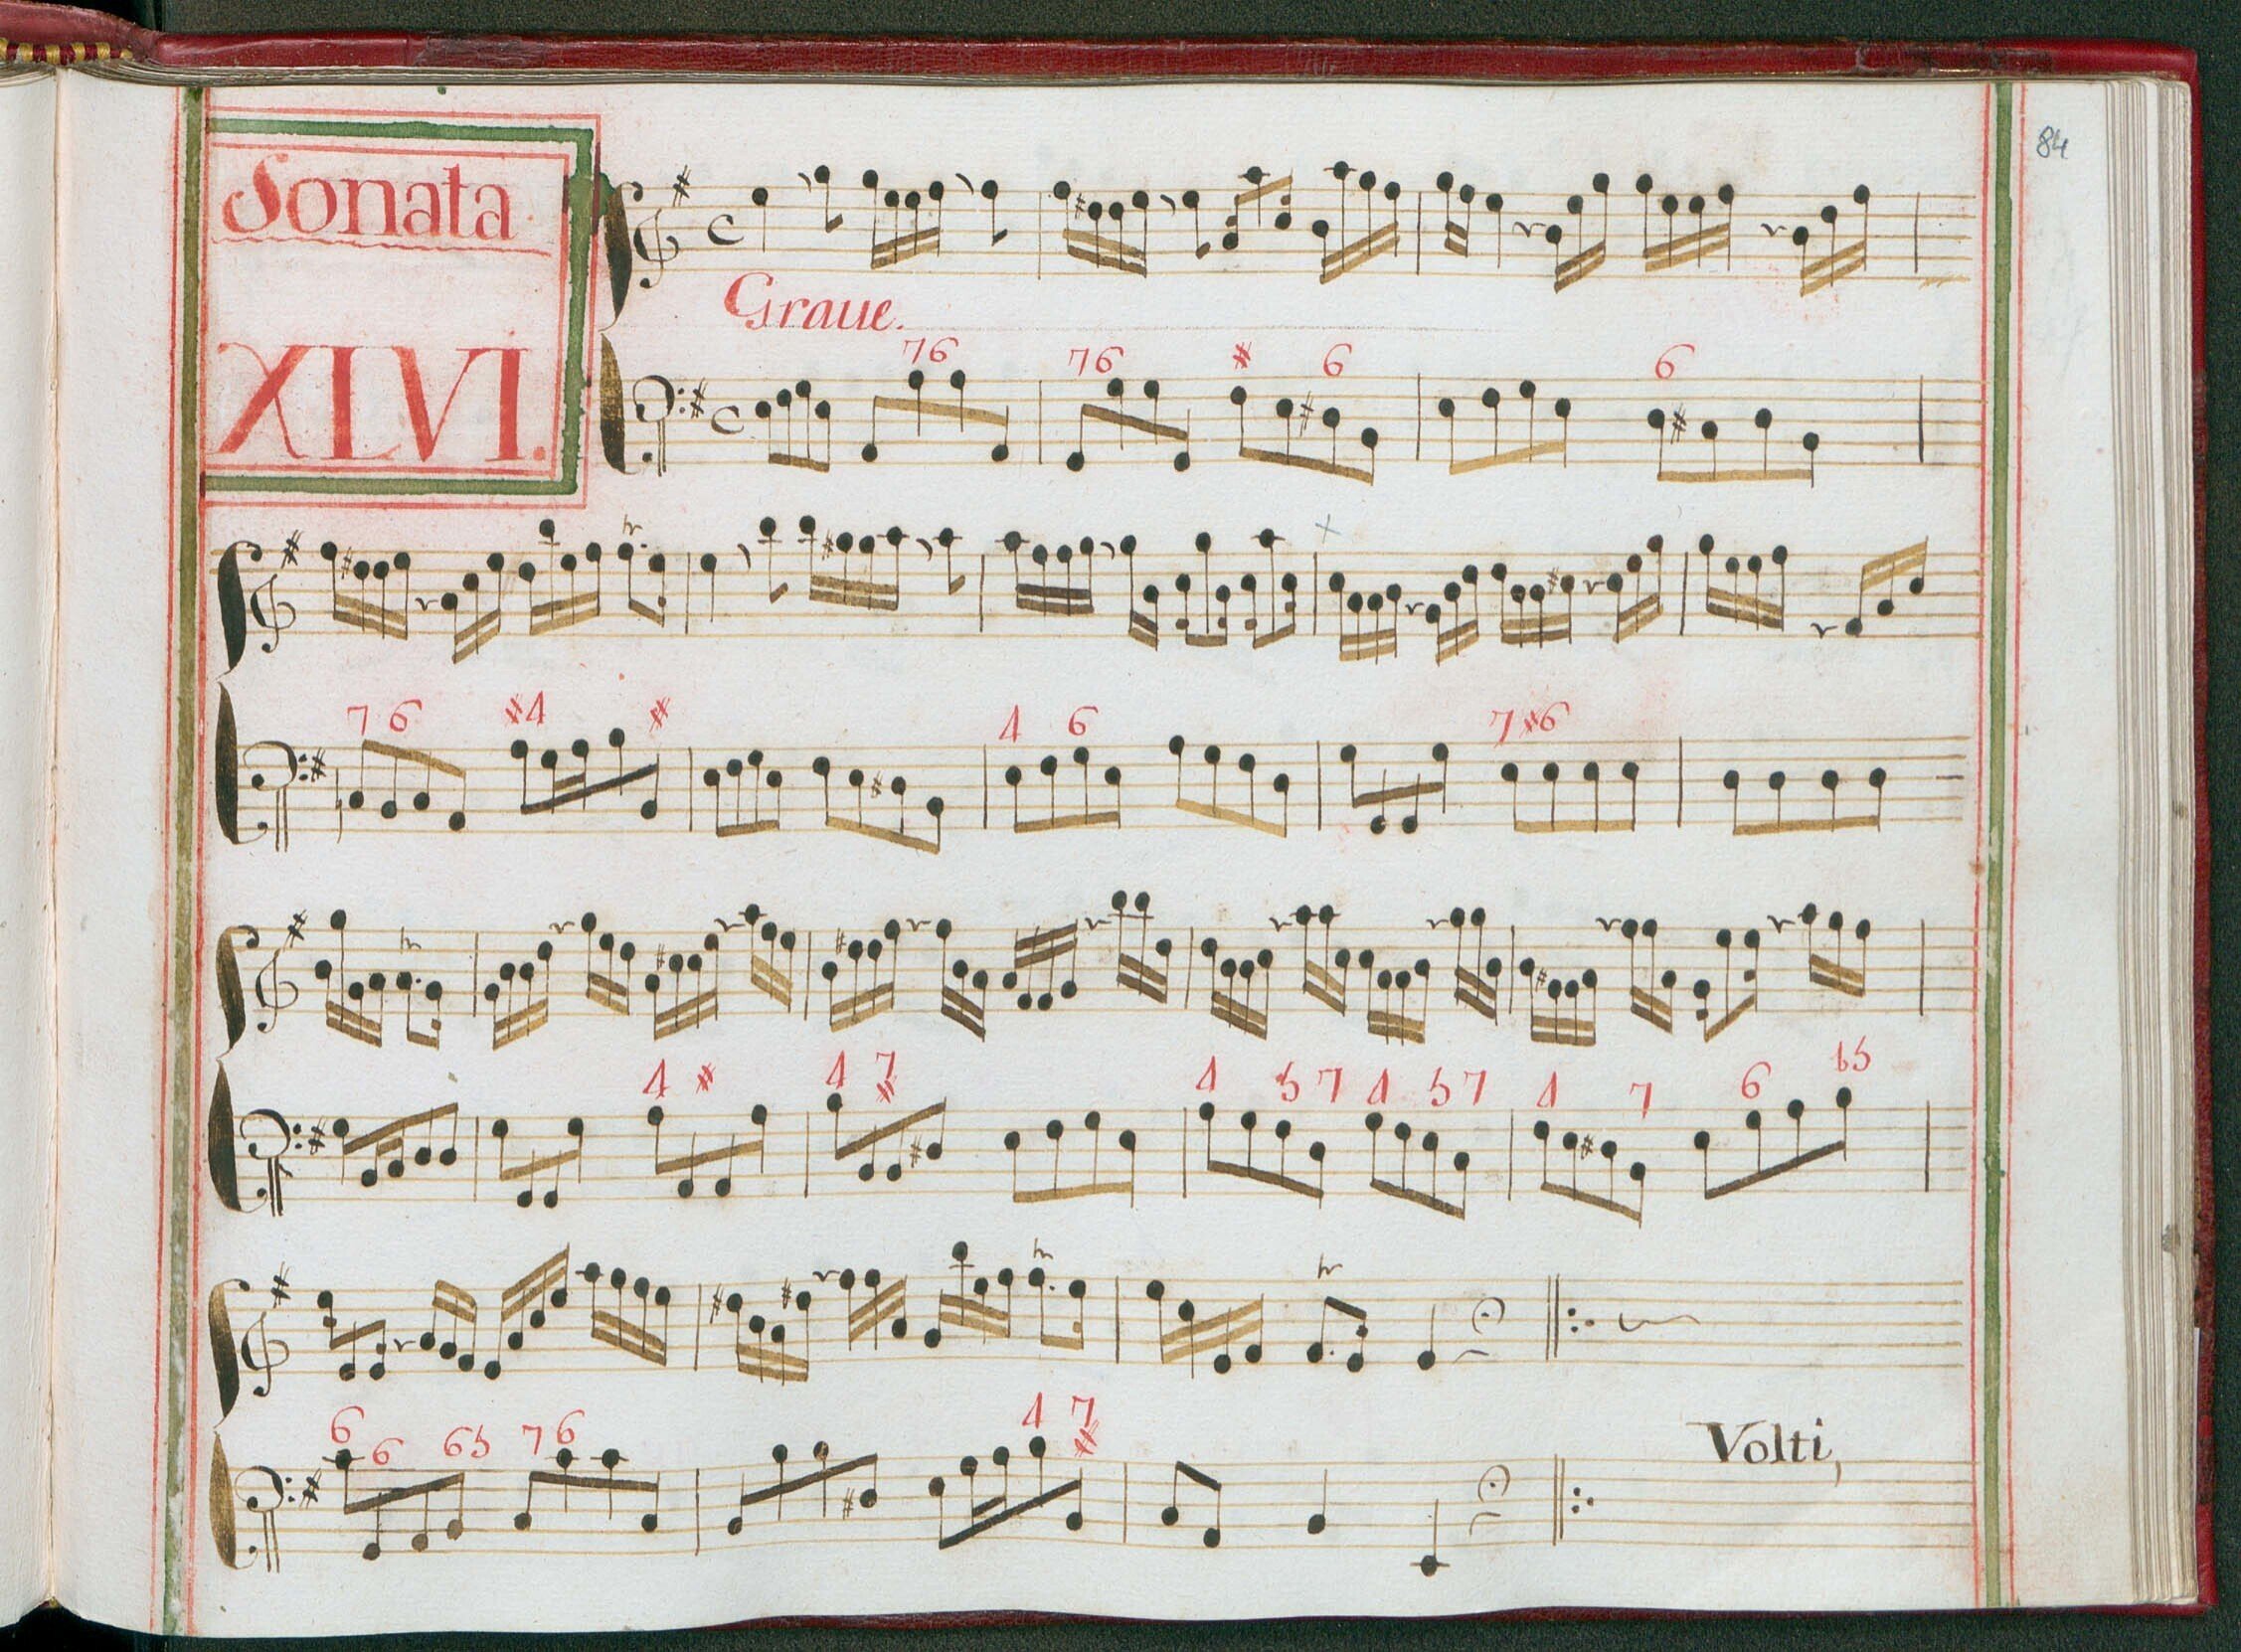 84
Sonata
XLVI.
Graue.
7 6 7 6 # 6 6
7 6 #4 # 4 6 7 #6
4 # 4 7 # 4 5 7 4 5 7 4 7 6 b5
6 6 6 5 7 6 4 7 #
Volti,